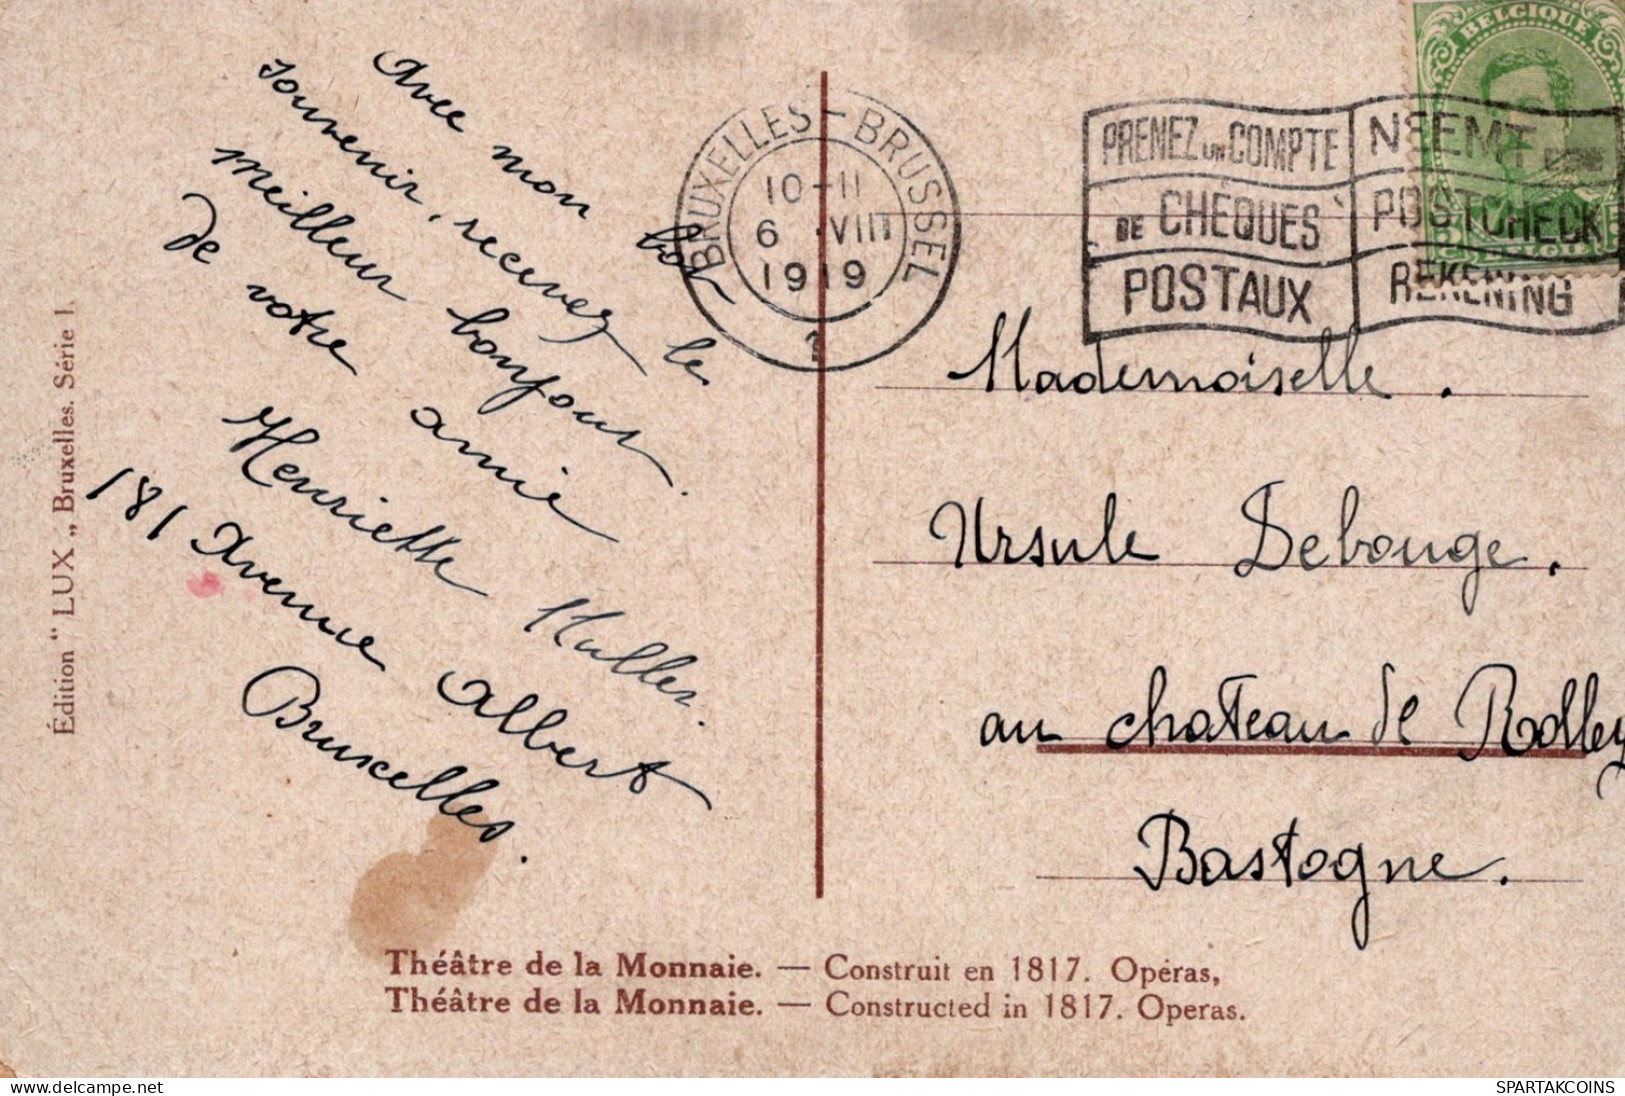 Avec mon bon
souvenir, recevez le
meilleur bonjour.
de votre amie
Henriette Muller.
181 Avenue Albert
Bruxelles.
Édition " LUX „ Bruxelles. Série 1.
BRUXELLES - BRUSSEL
10-11
6 VIII
1919
1
PRENEZ UN COMPTE
DE CHÈQUES
POSTAUX
NEEMT
POSTCHECK
REKENING
BELGIQUE
BELGIE
Mademoiselle.
Ursule Debouge.
au chateau de Rolley
Bastogne.
Théâtre de la Monnaie. — Construit en 1817. Opéras,
Théâtre de la Monnaie. — Constructed in 1817. Operas.
www.delcampe.net
SPARTAKCOINS